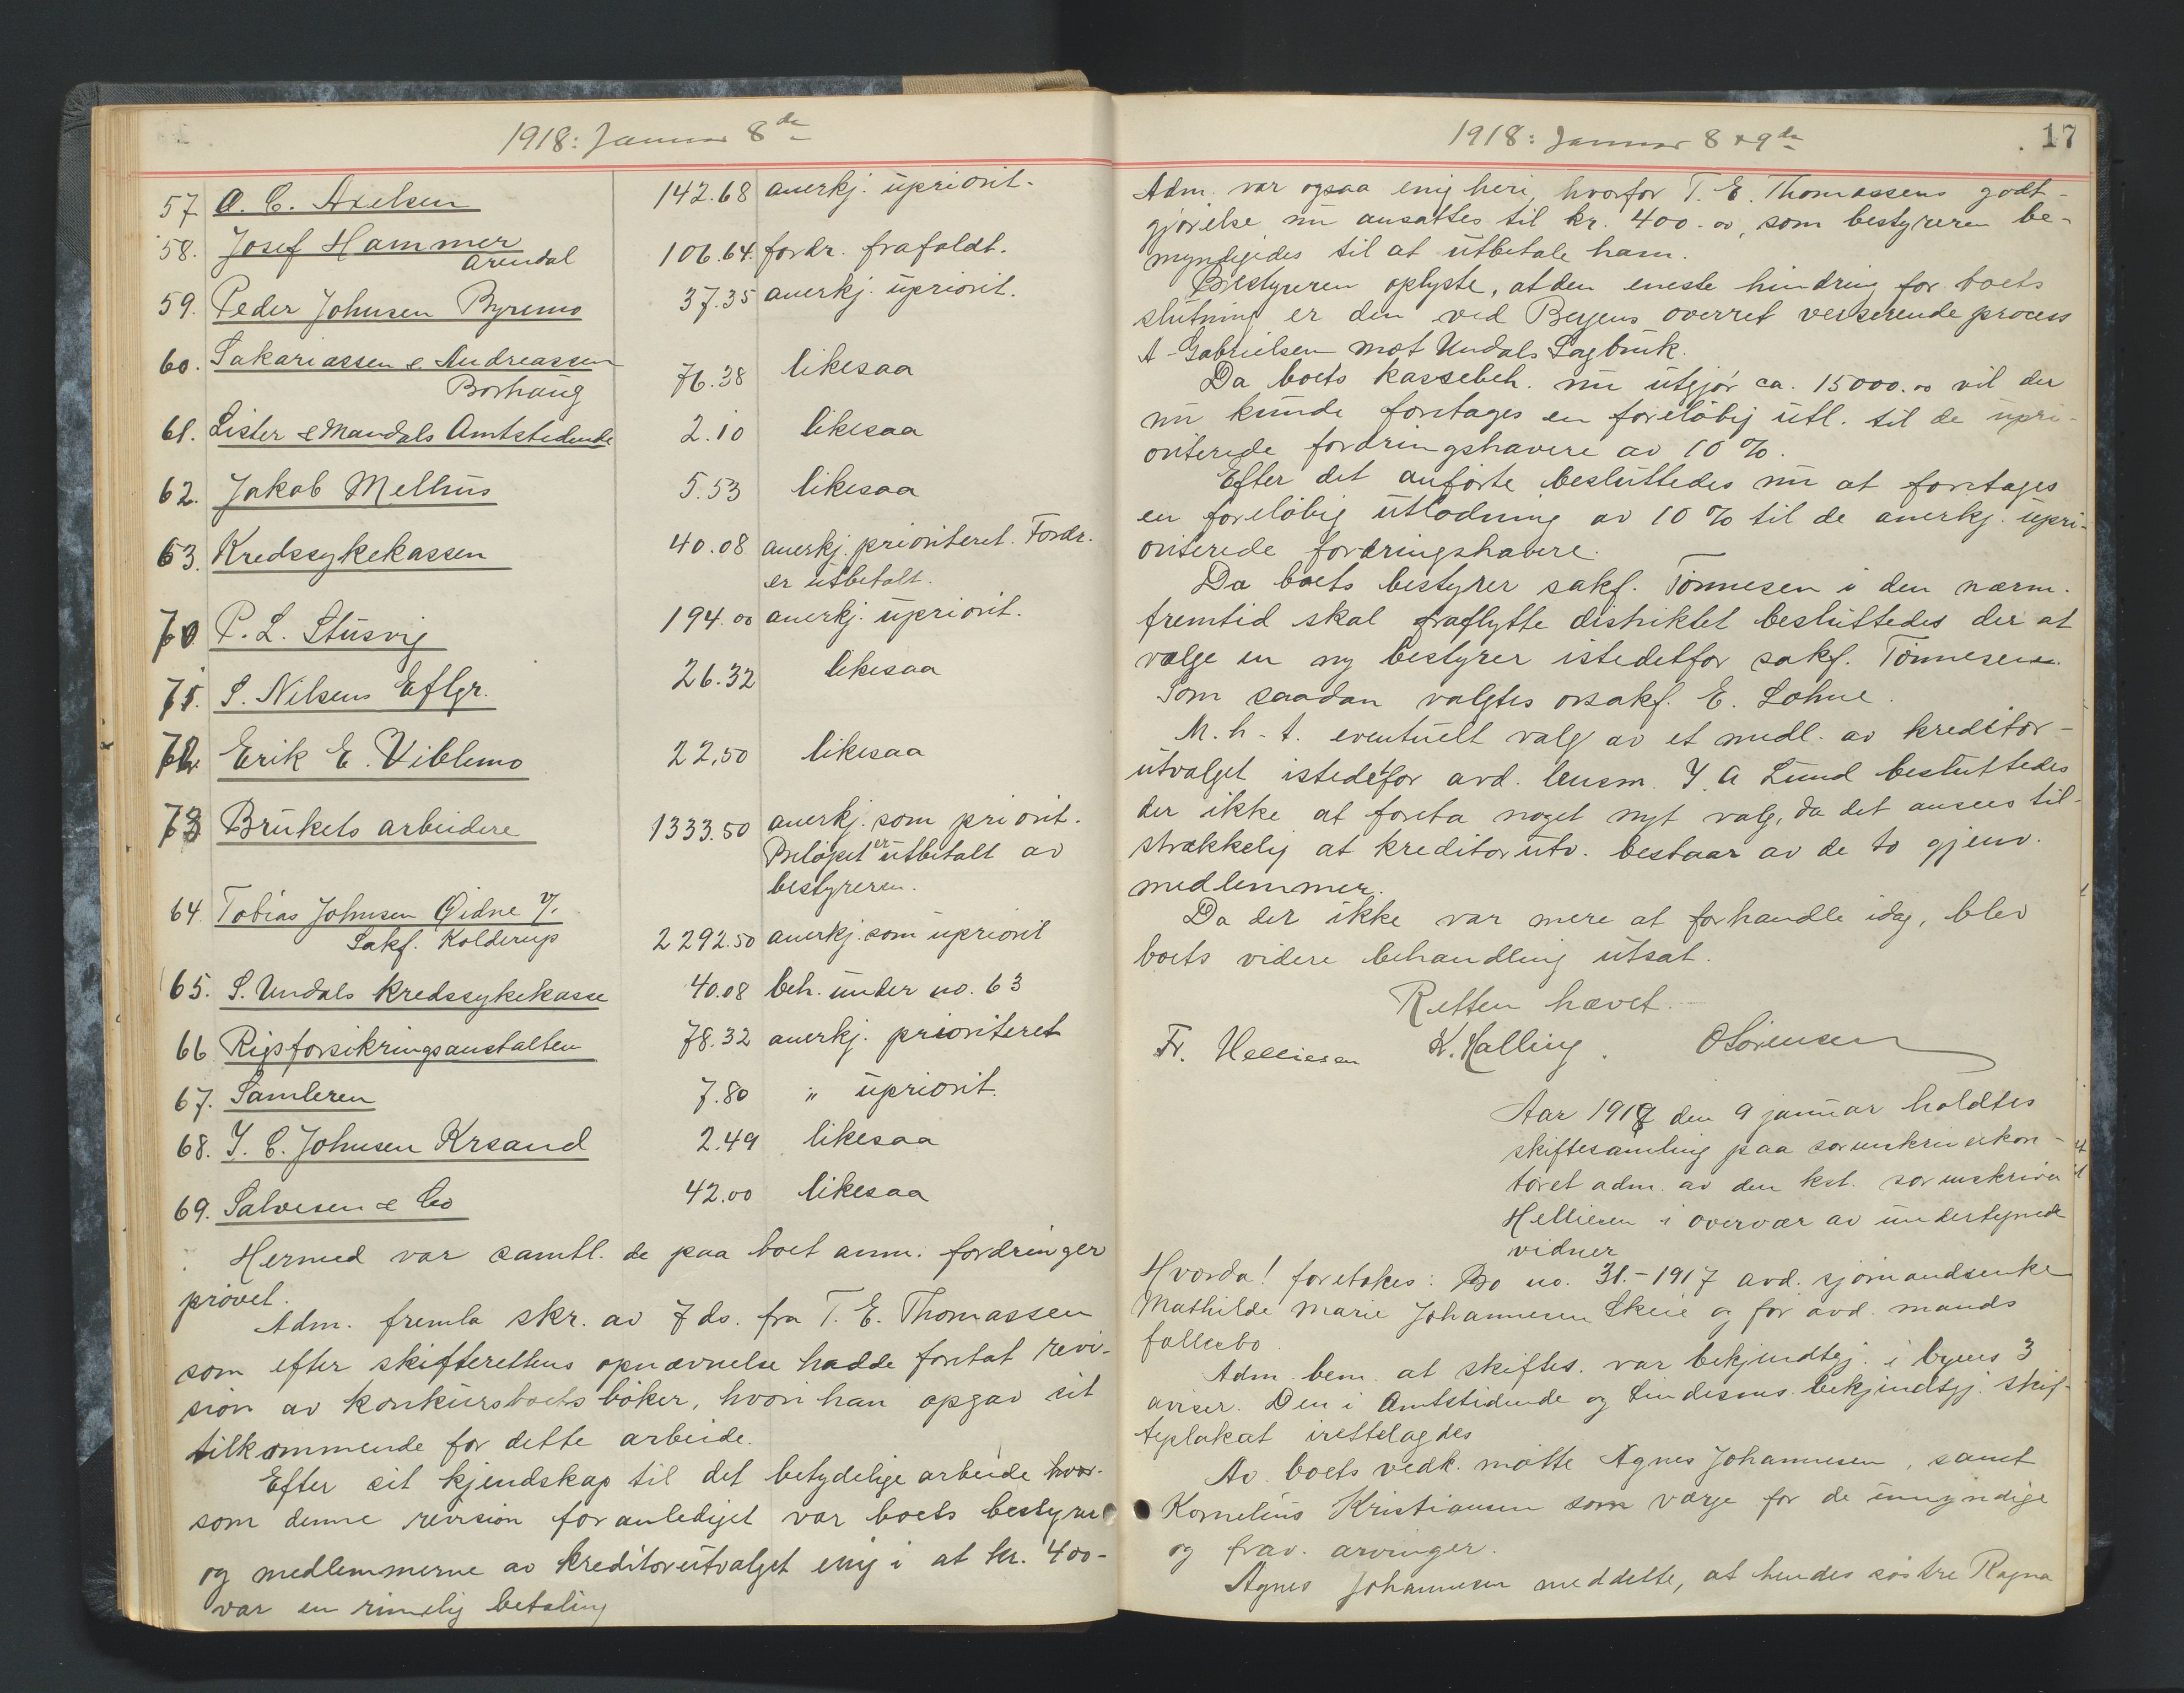 1918: Januar 8de
57 A. C. Axelsen 142.68 anerkj. upriorit.
58. Josef Hammer
Arendal 106.64. fordr. frafaldt.
59. Peder Johnsen Byremo 37.35 anerkj. upriorit.
60. Sakariassen & Andreassen
Borhaug 76.38 likesaa
61. Lister & Mandals Amtstidende 2.10 likesaa
62. Jakob Melhus 5.53 likesaa
63. Kredssykekassen 40.08 anerkj. prioriteret. Fordr.
er utbetalt.
70 P. L. Stusvig 194.00 anerkj. upriorit.
71. S. Nilsens Eftgr. 26.32 likesaa
72. Erik E. Viblemo 22,50 likesaa
73 Brukets arbeidere 1333.50 anerkj. som priorit.
Beløpet er utbetalt av
bestyreren.
64. Tobias Johnsen Øidne v/
Sakf. Kolderup 2292.50 anerkj. som upriorit
65. S. Undals kredssykekasse 40.08 beh. under no. 63
66 Rigsforsikringsanstalten 78.32 anerkj. prioriteret
67. Samleren 7.80 " upriorit.
68. J. C. Johnsen Krsand 2.49 likesaa
69. Salvesen & Co 42.00 likesaa
Hermed var samtl. de paa boet anm. fordringer
prøvet.
Adm. fremla skr. av 7 ds. fra T. E. Thomassen
som efter skifterettens opnævnelse hadde foretat revi-
sion av konkursboets bøker, hvori han opgav sit
tilkommende for dette arbeide.
Efter sit kjendskap til det betydelige arbeide hvor-
som denne revision foranlediget var boets bestyrer
og medlemmerne av kreditorutvalget enig i at kr. 400-
var en rimelig betaling
1918: Januar 8 & 9de
17
Adm. var ogsaa enig heri, hvorfor T. E. Thomassens godt-
gjørelse nu ansattes til kr. 400.00, som bestyreren be-
myndigedes til at utbetale ham.
Bestyreren oplyste, at den eneste hindring for boets
slutning er den ved Bergens overret verserende process
A. Gabrielsen mot Undals Sagbruk.
Da boets kassebeh. nu utgjør ca. 15000.00 vil der
nu kunde foretages en foreløbig utl. til de upri-
oriterede fordringshavere av 10 %.
Efter det anførte besluttedes nu at foretages
en foreløbig utlodning av 10 % til de anerkj. upri-
oriterede fordringshavere.
Da boets bestyrer sakf. Tønnesen i den nærm.
fremtid skal fraflytte distriktet besluttedes der at
vælge en ny bestyrer istedetfor sakf. Tønnesen.
Som saadan valgtes orsakf. E. Lohne.
M. h. t. eventuelt valg av et medl. av kreditor-
utvalget istedetfor avd. lensm. J. A Lund besluttedes
der ikke at foreta noget nyt valg, da det ansees til-
strækkelig at kreditorutv. bestaar av de to gjenv.
medlemmer.
Da der ikke var mere at forhandle idag, blev
boets videre behandling utsat.
Retten hævet.
Fr. Helliesen K. Halling. O Sørensen
Aar 1918 den 9 januar holdtes
skiftesamling paa sorenskriverkon-
toret adm. av den kst. sorenskriver
Helliesen i overvær av undertegnede
vidner
Hvorda! foretokes: Bo no. 31.-1917 avd. sjømandsenke
Mathilde Marie Johannesen Skeie og før avd. mands
fællesbo.
Adm. bem. at skiftes. var bekjendtgj. i byens 3
aviser. Den i Amtstidende og Lindesnes bekjendtgj. skif-
teplakat irettelagdes
Av boets vedk. møtte Agnes Johannesen, samt
Kornelius Kristiansen som værge for de umyndige
og frav. arvinger.
Agnes Johannesen meddelte, at hendes søstre Ragna